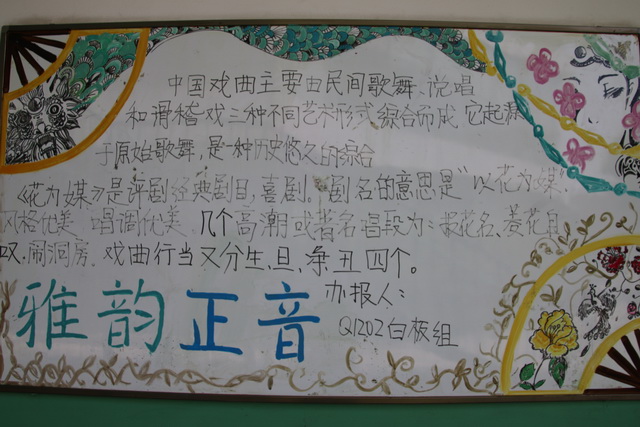 中国戏曲主要由民间歌舞、说唱
和滑稽戏三种不同艺术形式综合而成,它起源
于原始歌舞,是一种历史悠久的综合
《花为媒》是评剧经典剧目,喜剧。剧名的意思是“以花为媒,
风格优美、唱调优美、几个高潮或著名唱段为:报花名、菱花自
叹、闹洞房、戏曲行当又分生、旦、净、丑四个。
雅韵正音
办报人:
Q1202白板组